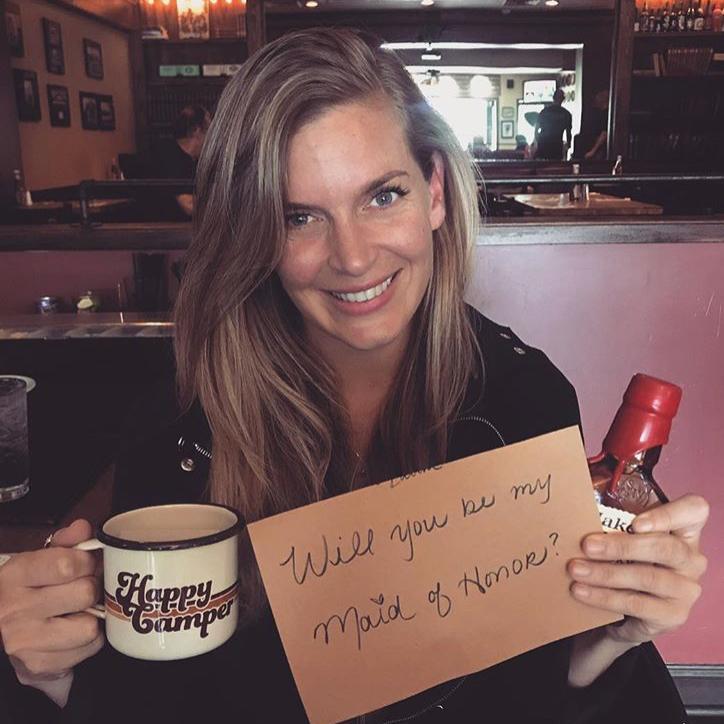 Happy
Camper
Will you be my
Maid of Honor?
Make